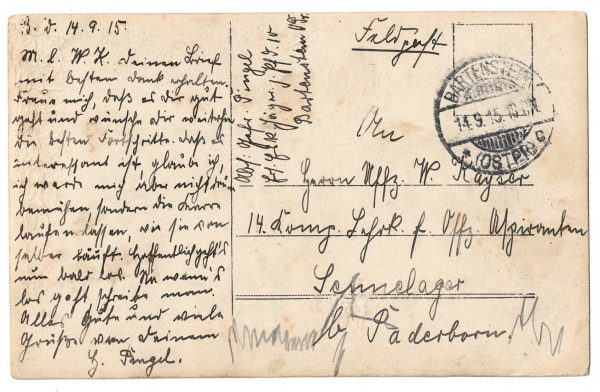 B. d. 14.9.15.
M. l. W. K. Deinen Brief
mit bestem Dank erhalten.
Freue mich, daß es dir gut
geht und wünsche dir weiterhin
die besten Fortschritte. daß es
interessant ist glaube ich,
ich werde mich aber nicht drum
bemühen, sondern die Karre
laufen lassen, wie sie von
selber läuft. Hoffendlich geht's
nun bald los. Na wenn's
los geht, schreibe man.
Alles Gute und viele
Grüße von Deinem
H. Pingel.
Abs. Gefr. Pingel
Bartenstein Ostpr.
Feldpost
BARTENSTEIN
14.9.15
(OSTPR)
An
Herrn Uffz. W. Kayser
14. Komp. Lehrk. f. Offz. Aspiranten
Sennelager
b/ Paderborn.